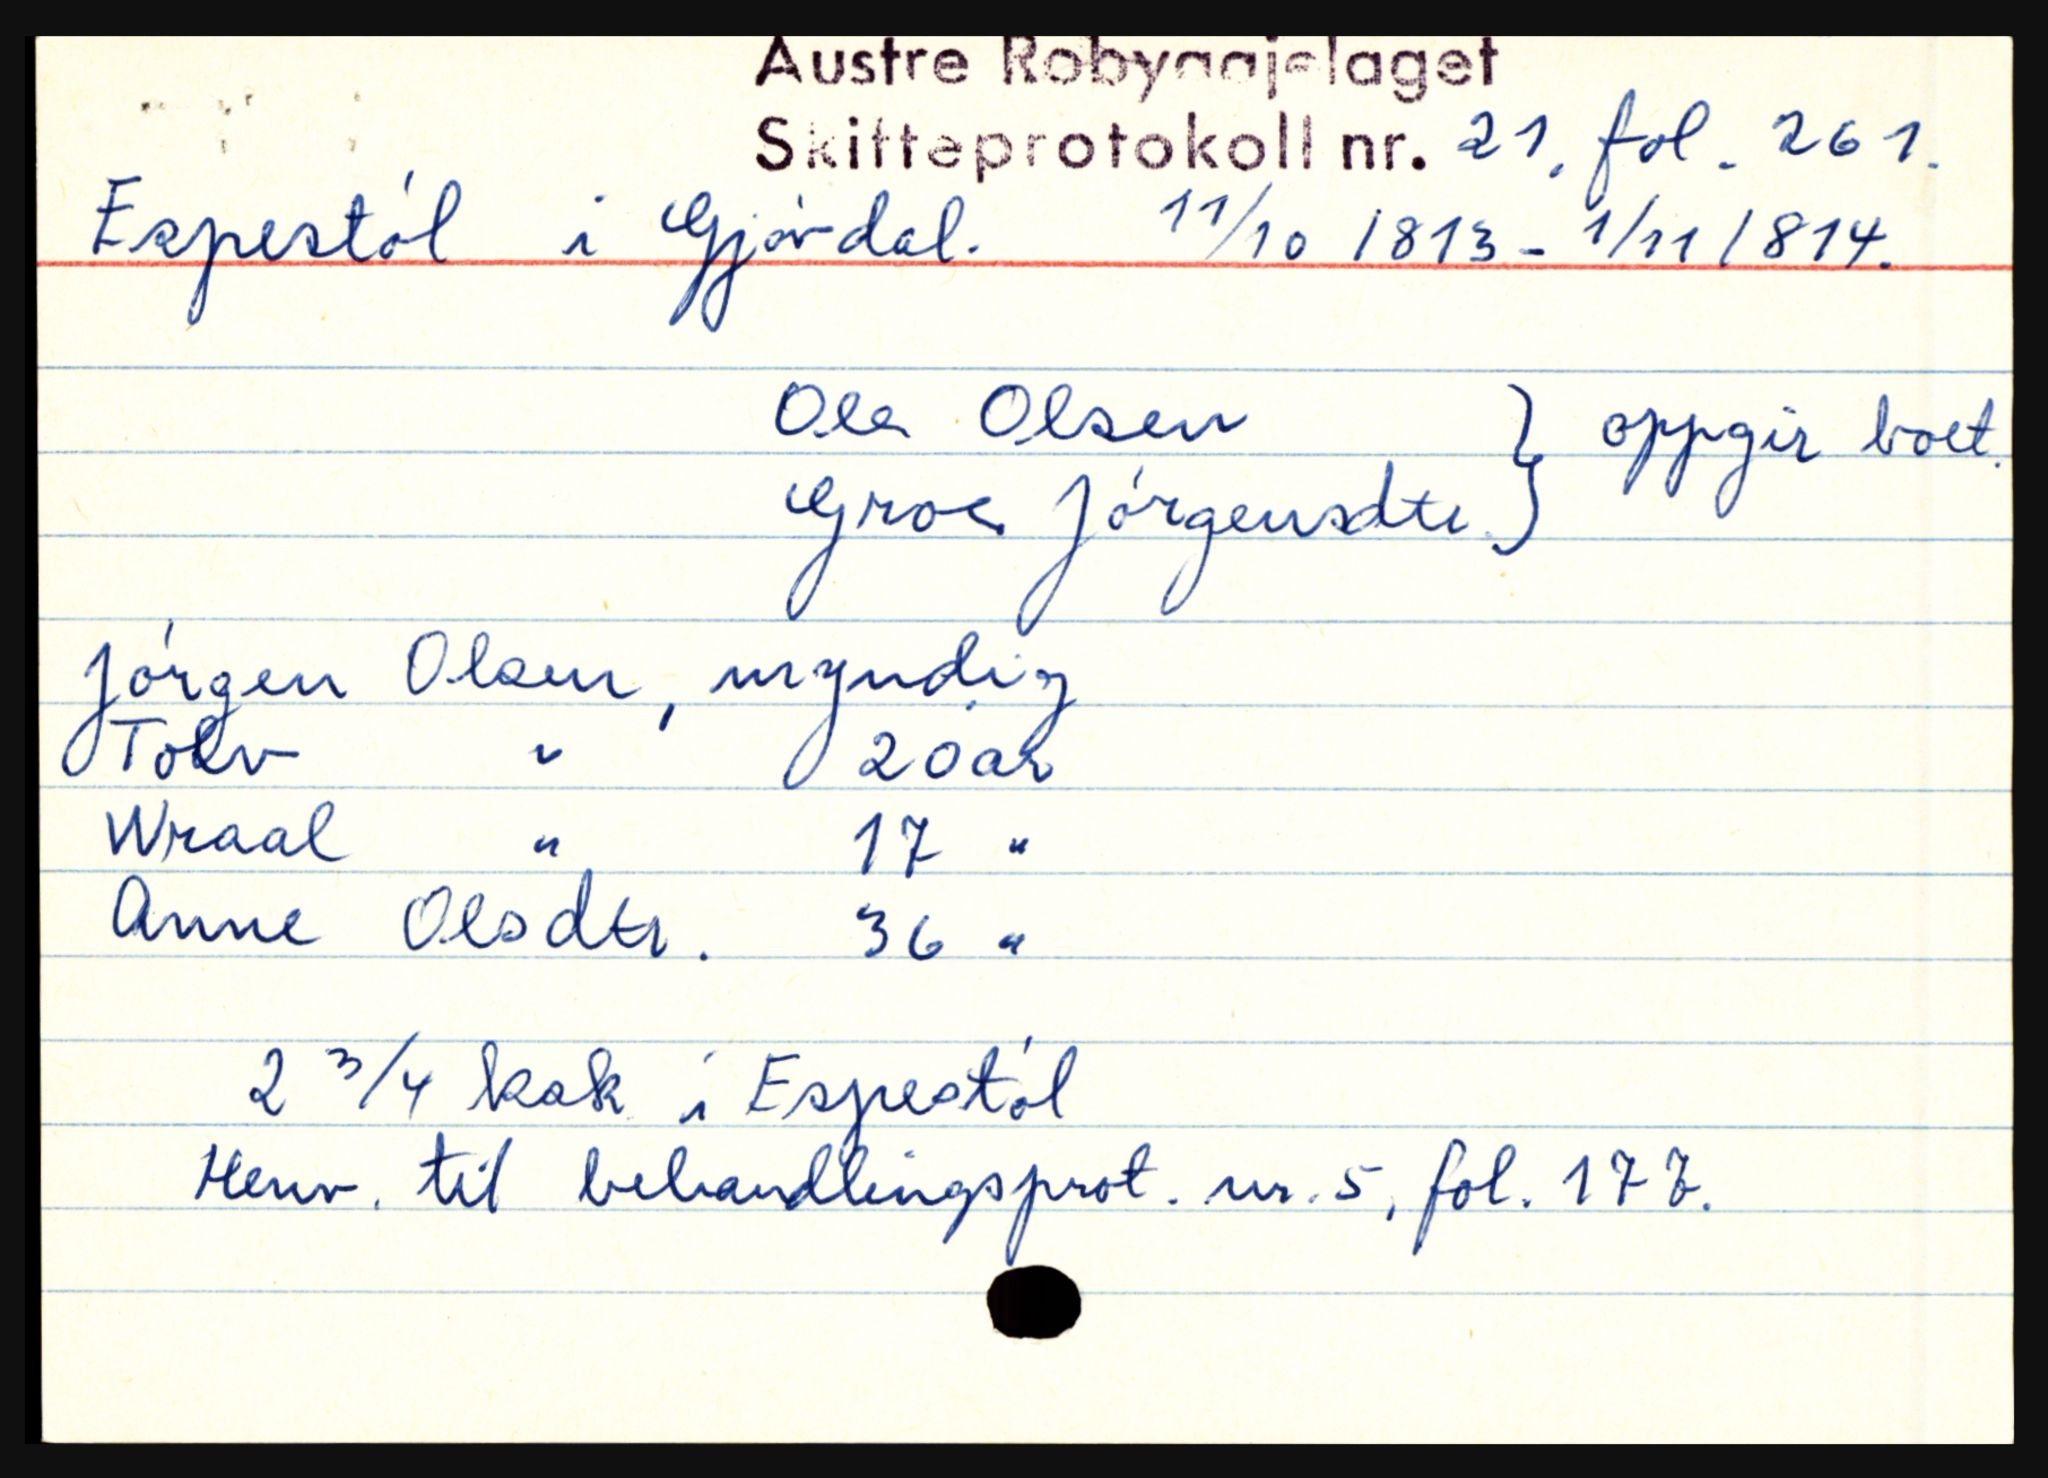 Austre Robyggjelaget
Skifteprotokoll nr. 21. fol. 261.
Espestól i Gjóvdal. 11/10 1813 - 1/11 1814.
Ole Olsen } oppgir boet.
Groe Jórgensdtr. }
Jórgen Olsen, myndig
Tolv " 20 år
Wraal " 17 "
Anne Olsdtr. 36 "
2 3/4 ksk i Espestól
Henv. til behandlingsprot. nr. 5, fol. 177.